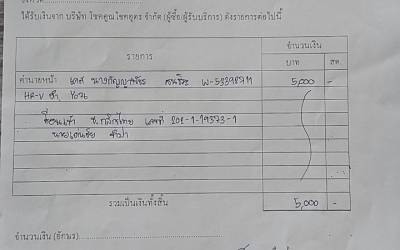 ได้รับเงินจาก บริษัท โชคคูณโชคอุดร จำกัด (ผู้ซื้อ/ผู้รับบริการ) ดังรายการต่อไปนี้
รายการ จำนวนเงิน
บาท สต.
ค่านายหน้า เคส นางกัญญาพัชร 5,000 -
HR-V
โอนเข้า ธ.กสิกรไทย เลขที่ 201-1-19373-1
รวมเป็นเงินทั้งสิ้น 5,000 -
จำนวนเงิน (อักษร)